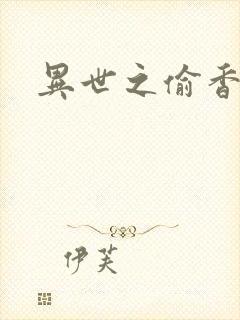 異世之偷香
伊芙